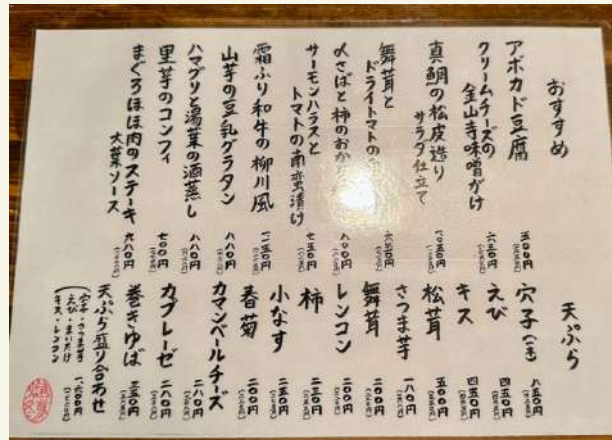 おすすめ
アボカド豆腐 五〇〇円
クリームチーズの
金山寺味噌がけ 六三〇円
真鯛の松皮造り
サラダ仕立て 一、〇五〇円
舞茸と
ドライトマトの 六五〇円
〆さばと柿のおか 八〇〇円
サーモンハラスと
トマトの南蛮漬け 七五〇円
霜ふり和牛の柳川風 一、二五〇円
山芋の豆乳グラタン 八八〇円
ハマグリと湯葉の酒蒸し 八八〇円
里芋のコンフィ 七〇〇円
まぐろほほ肉のステーキ
大葉ソース 六八〇円
天ぷら
穴子(一本) 八五〇円
えび 四五〇円
キス 四五〇円
松茸 五〇〇円
さつま芋 一八〇円
舞茸 二〇〇円
レンコン 二〇〇円
柿 二三〇円
小なす 二五〇円
春菊 二〇〇円
カマンベールチーズ 二八〇円
カプレーゼ 二八〇円
巻きゆば 三五〇円
天ぷら盛り合わせ 一、六〇〇円
(穴子・さつま芋
えび・まいたけ
キス・レンコン)